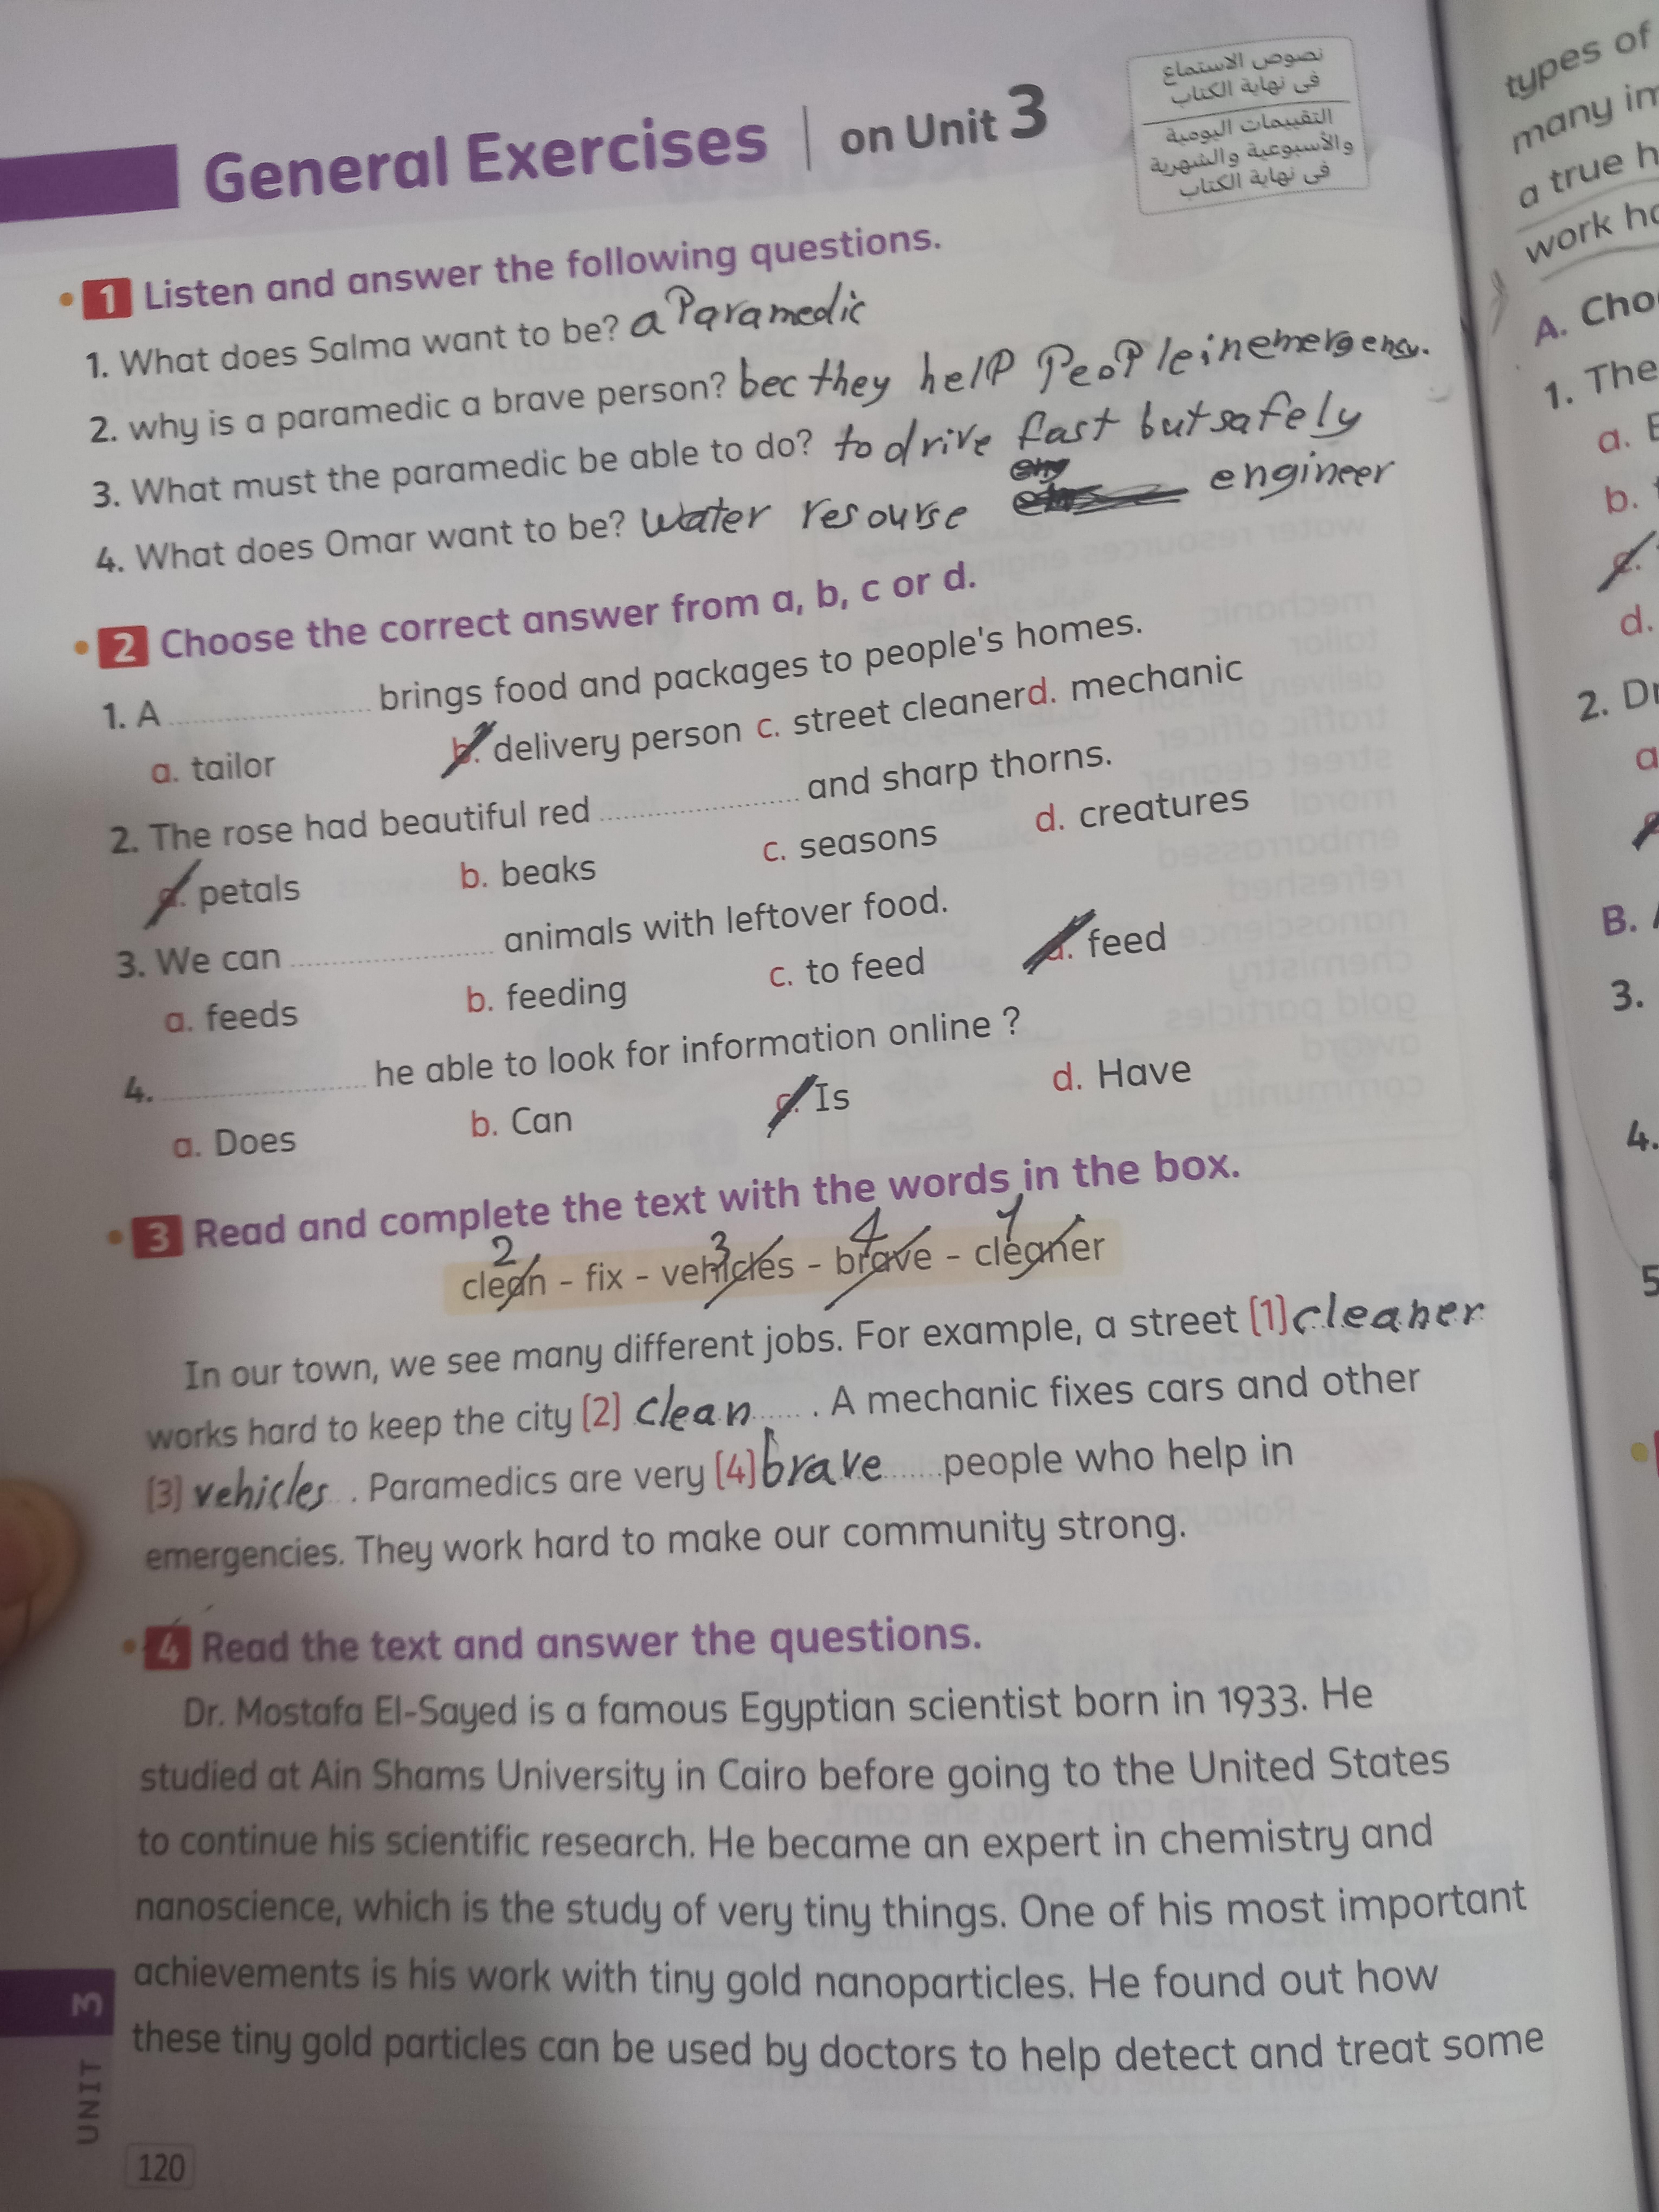 General Exercises | on Unit 3
نصوص الاستماع
فى نهاية الكتاب
التقييمات اليومية
والأسبوعية والشهرية
فى نهاية الكتاب
1 Listen and answer the following questions.
1. What does Salma want to be? a Paramedic
2. why is a paramedic a brave person? bec they help People in emergency.
3. What must the paramedic be able to do? to drive fast but safely
4. What does Omar want to be? water resourse engineer
2 Choose the correct answer from a, b, c or d.
1. A .................... brings food and packages to people's homes.
a. tailor b. delivery person c. street cleaner d. mechanic
2. The rose had beautiful red .................... and sharp thorns.
a. petals b. beaks c. seasons d. creatures
3. We can .................... animals with leftover food.
a. feeds b. feeding c. to feed d. feed
4. .................... he able to look for information online ?
a. Does b. Can c. Is d. Have
3 Read and complete the text with the words in the box.
2 3 4 1
clean - fix - vehicles - brave - cleaner
In our town, we see many different jobs. For example, a street (1) cleaner
works hard to keep the city (2) clean ..... . A mechanic fixes cars and other
(3) vehicles . Paramedics are very (4) brave ...... people who help in
emergencies. They work hard to make our community strong.
4 Read the text and answer the questions.
Dr. Mostafa El-Sayed is a famous Egyptian scientist born in 1933. He
studied at Ain Shams University in Cairo before going to the United States
to continue his scientific research. He became an expert in chemistry and
nanoscience, which is the study of very tiny things. One of his most important
achievements is his work with tiny gold nanoparticles. He found out how
these tiny gold particles can be used by doctors to help detect and treat some
UNIT 3
120
types of
many
a true
work
A.
1. The
a.
b.
c.
d.
2.
a
B.
3.
4.
5